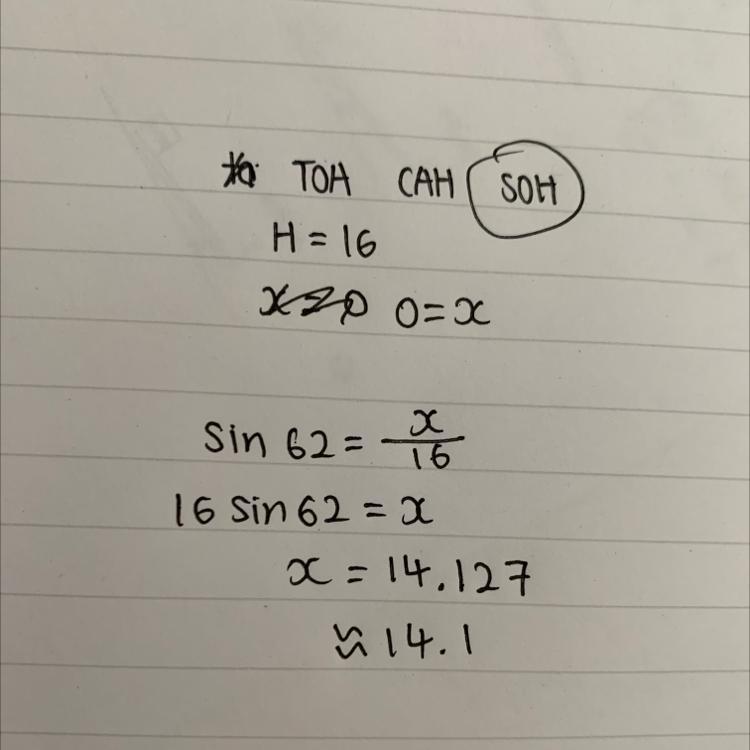 TOH CAH SOH
H = 16
O = x
sin 62 = x/16
16 sin 62 = x
x = 14.127
≈ 14.1